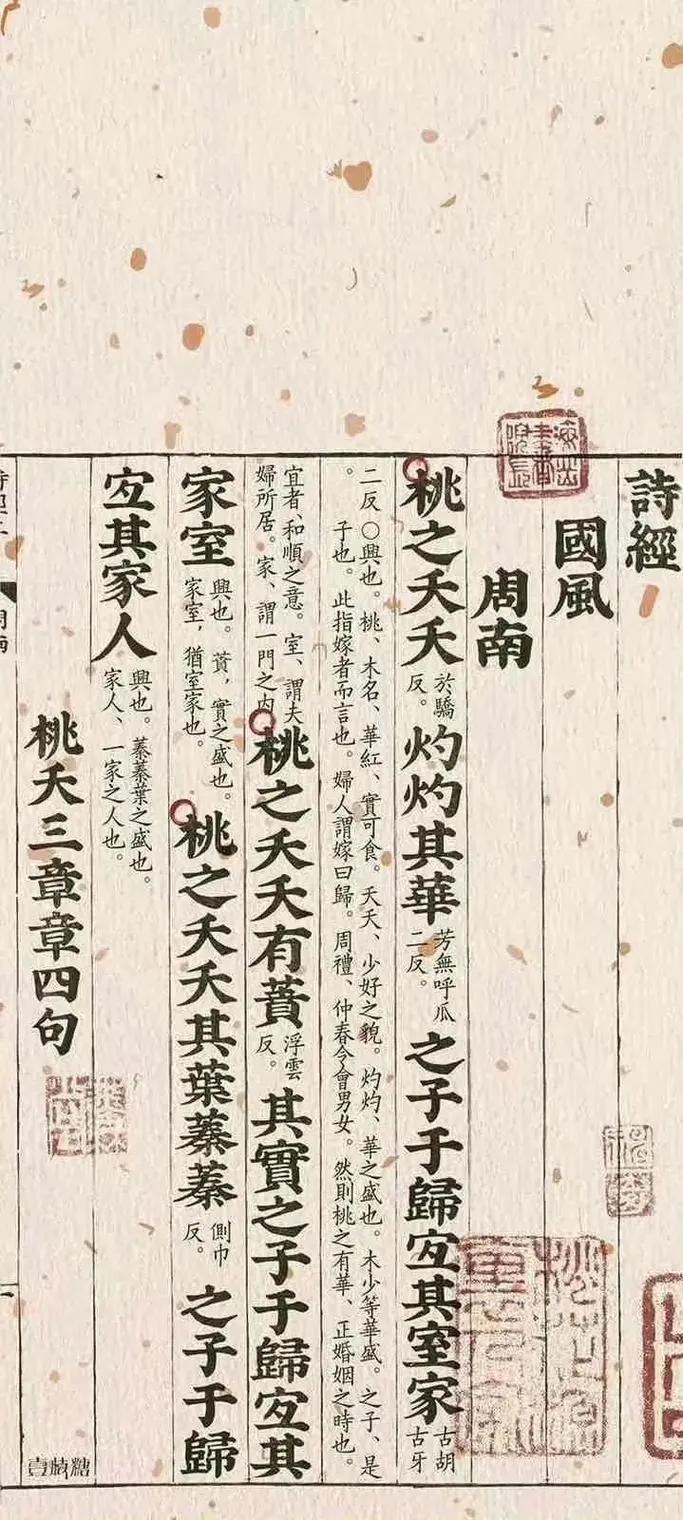 詩經
國風
周南
桃之夭夭於驕反。灼灼其華芳無呼瓜二反。之子于歸宐其室家古胡古牙
二反○興也。桃、木名、華紅、實可食。夭夭、少好之貌。灼灼、華之盛也。木少等華盛。之子、是
。子也。此指嫁者而言也。婦人謂嫁曰歸。周禮、仲春令會男女。然則桃之有華、正婚姻之時也。
宜者、和順之意。室、謂夫婦所居。家、謂一門之内桃之夭夭有蕡浮雲反。其實之子于歸宐其
家室興也。蕡,實之盛也。家室,猶室家也。桃之夭夭其葉蓁蓁側巾反。之子于歸
宐其家人興也。蓁蓁葉之盛也。家人、一家之人也。
桃夭三章章四句